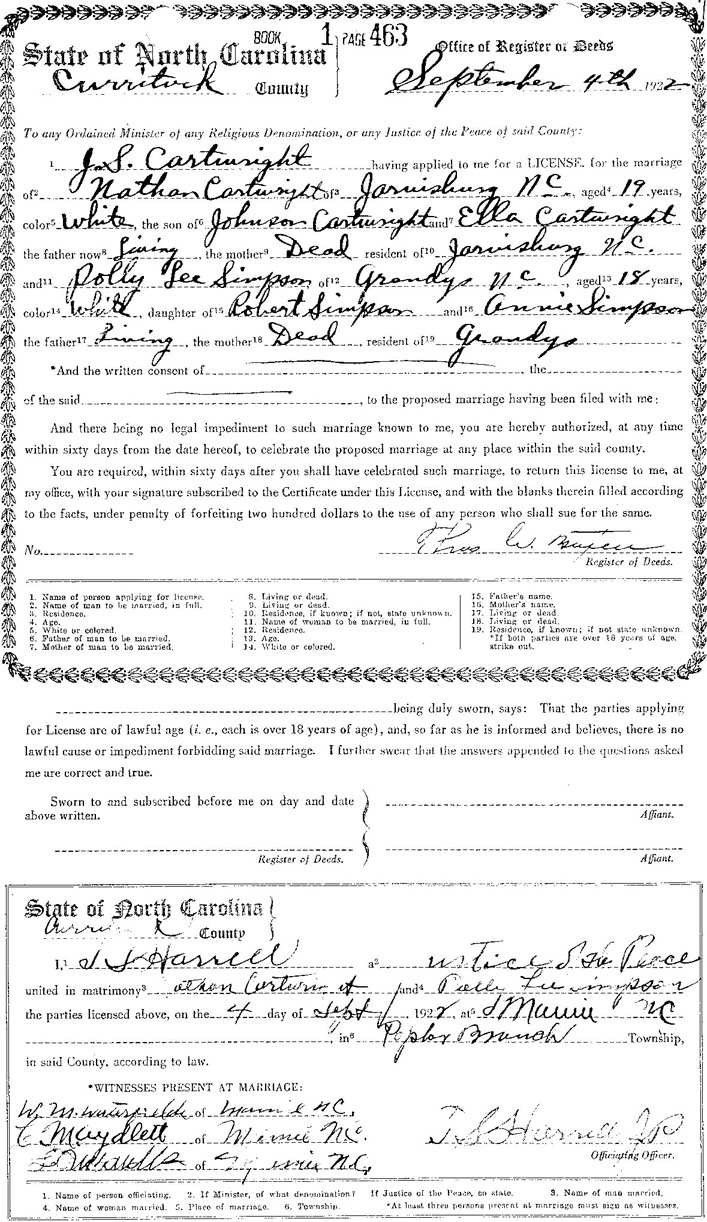 BOOK 1 PAGE 463
State of North Carolina
Office of Register of Deeds
Currituck County
September 4th 1922
To any Ordained Minister of any Religious Denomination, or any Justice of the Peace of said County:
1 J. S. Cartwright having applied to me for a LICENSE for the marriage
of2 Nathan Cartwright of3 Jarvisburg NC., aged4 19 years,
color5 White, the son of6 Johnson Cartwright and7 Ella Cartwright
the father now8 Living, the mother9 Dead resident of10 Jarvisburg NC.
and11 Polly Lee Simpson of12 Grandys NC., aged13 18 years,
color14 White, daughter of15 Robert Simpson and16 Annie Simpson
the father17 Living, the mother18 Dead, resident of19 Grandys
*And the written consent of , the
of the said , to the proposed marriage having been filed with me:
And there being no legal impediment to such marriage known to me, you are hereby authorized, at any time
within sixty days from the date hereof, to celebrate the proposed marriage at any place within the said county.
You are required, within sixty days after you shall have celebrated such marriage, to return this license to me, at
my office, with your signature subscribed to the Certificate under this License, and with the blanks therein filled according
to the facts, under penalty of forfeiting two hundred dollars to the use of any person who shall sue for the same.
No. Thos W.
Register of Deeds.
1. Name of person applying for license.
2. Name of man to be married, in full.
3. Residence.
4. Age.
5. White or colored.
6. Father of man to be married.
7. Mother of man to be married.
8. Living or dead.
9. Living or dead.
10. Residence, if known; if not, state unknown.
11. Name of woman to be married, in full.
12. Residence.
13. Age.
14. White or colored.
15. Father's name.
16. Mother's name.
17. Living or dead.
18. Living or dead.
19. Residence, if known; if not state unknown.
*If both parties are over 18 years of age,
strike out.
being duly sworn, says: That the parties applying
for License are of lawful age (i. e., each is over 18 years of age), and, so far as he is informed and believes, there is no
lawful cause or impediment forbidding said marriage. I further swear that the answers appended to the questions asked
me are correct and true.
Sworn to and subscribed before me on day and date
above written.
Affiant.
Register of Deeds.
Affiant.
State of North Carolina
County
I,1 T S Harrell a2 ustice of the Peace
united in matrimony3 and4 Lee impson
the parties licensed above, on the 4 day of Sept, 1922, at5 NC
in6 Poplar Branch Township,
in said County, according to law.
*WITNESSES PRESENT AT MARRIAGE:
W. M. Waterfield of NC.
C Maydlett of NC.
of NC.
T S Harrell JP
Officiating Officer.
1. Name of person officiating. 2. If Minister, of what denomination? If Justice of the Peace, so state. 3. Name of man married.
4. Name of woman married. 5. Place of marriage. 6. Township. *At least three persons present at marriage must sign as witnesses.